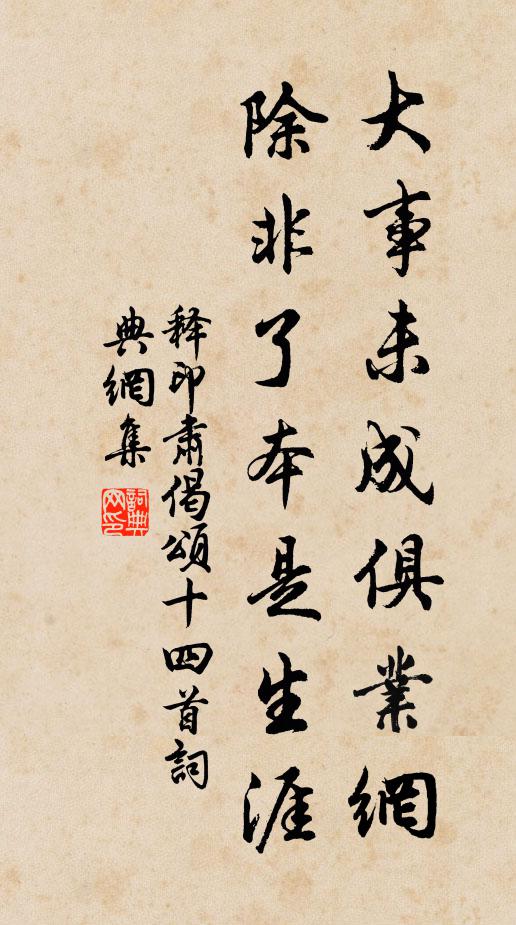 大事未成俱業網
除非了本是生涯
釋印肅偈頌十四首詞
典網集
詞典
网印